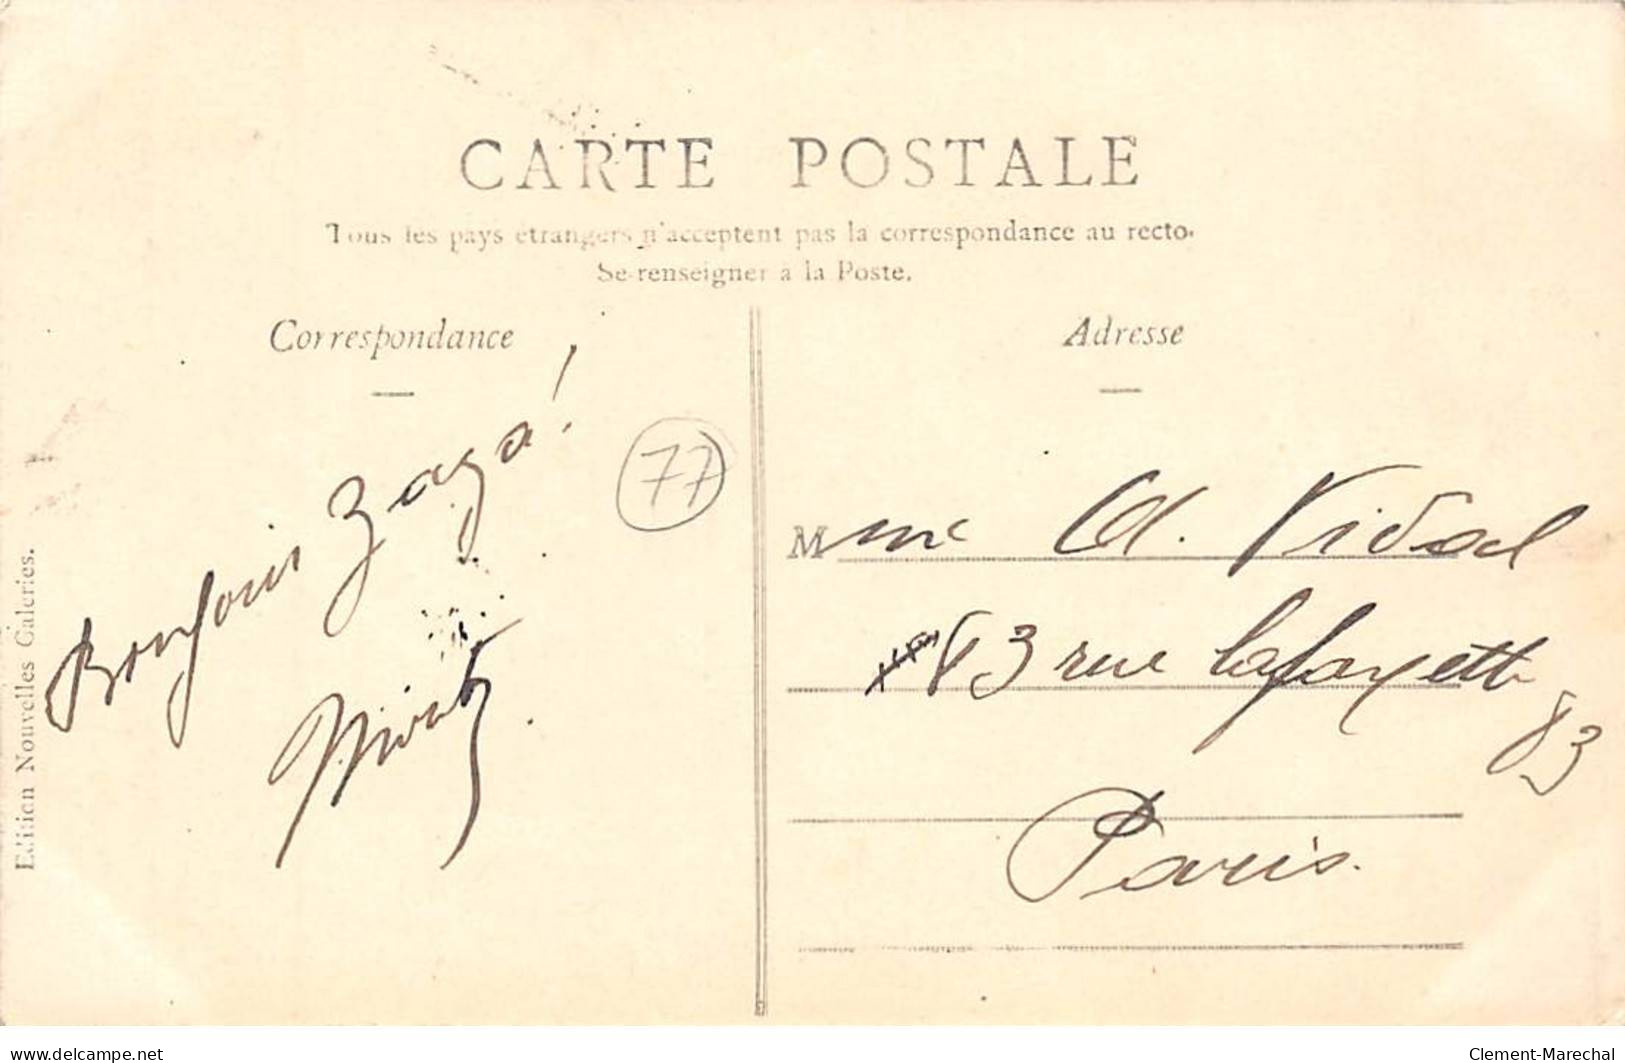 CARTE POSTALE
Tous les pays étrangers n'acceptent pas la correspondance au recto.
Se renseigner à la Poste.
Correspondance
Adresse
Bonjour Zaza!
77
Mme Cl. Vidal
83 rue Lafayette
83
Paris.
Edition Nouvelles Galeries.
www.delcampe.net
Clement-Marechal